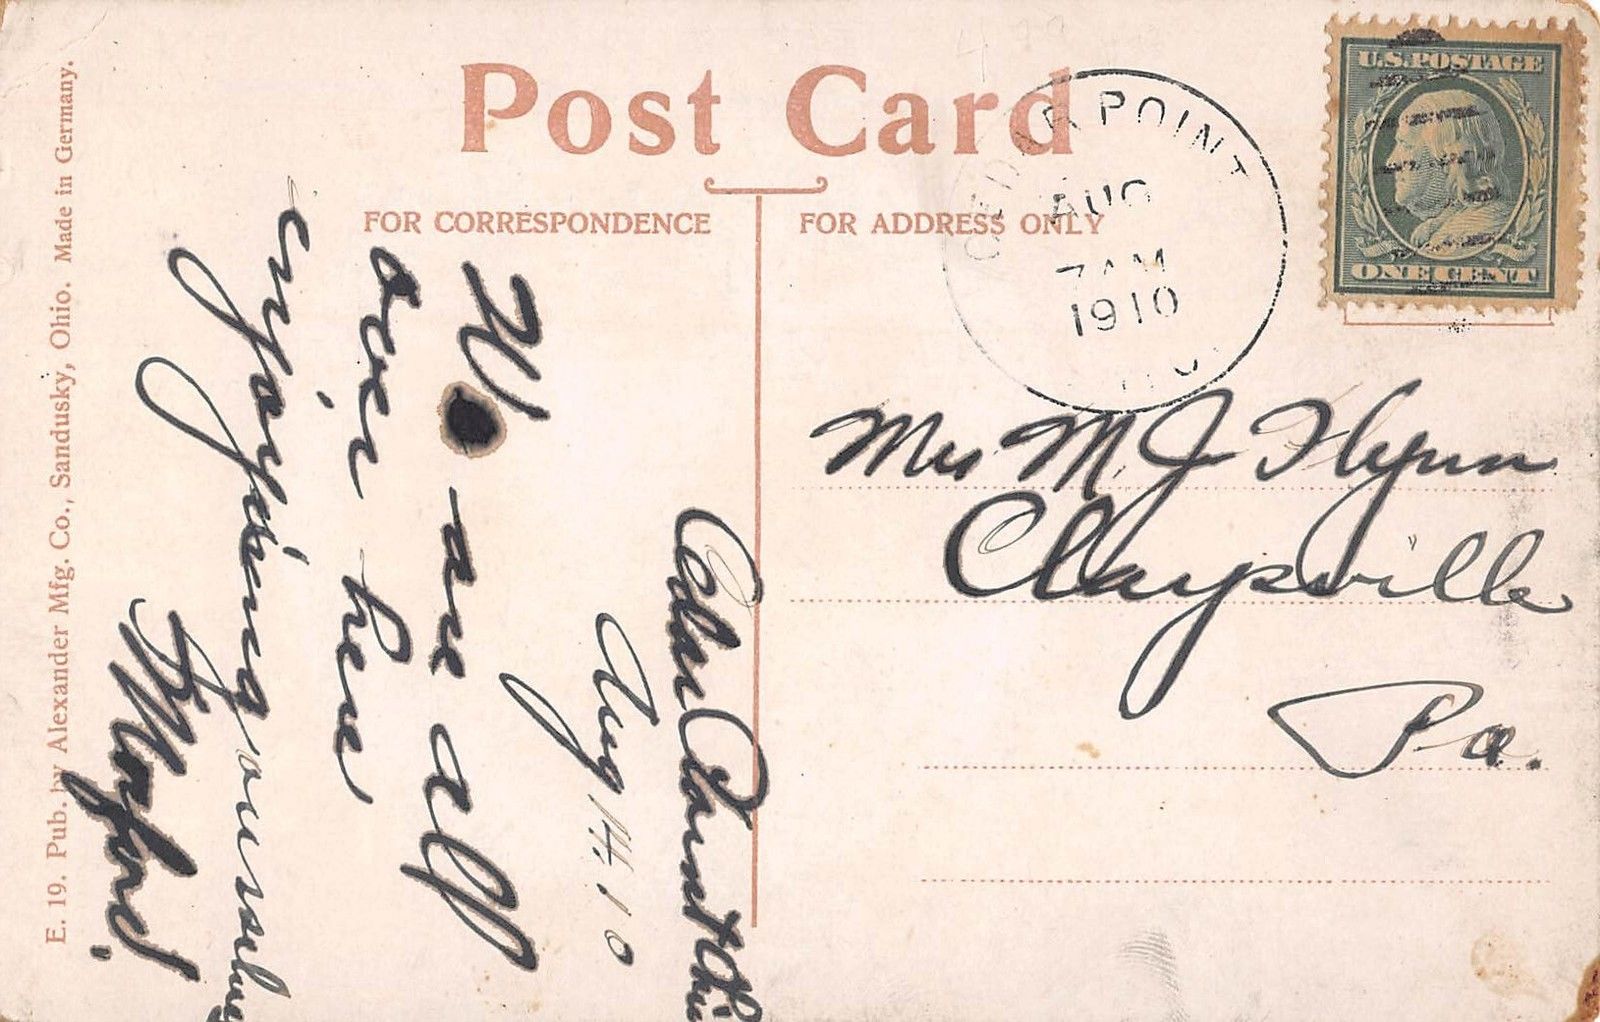 Post Card
FOR CORRESPONDENCE
FOR ADDRESS ONLY
CEDAR POINT
AUG
7 AM
1910
U.S. POSTAGE
ONE CENT
Mrs M. J. Flynn
Claysville
Pa.
Cedar Point Ohio
Aug 14. 10
We are all
over here
enjoying ourselves
E. 19. Pub. by Alexander Mfg. Co., Sandusky, Ohio. Made in Germany.